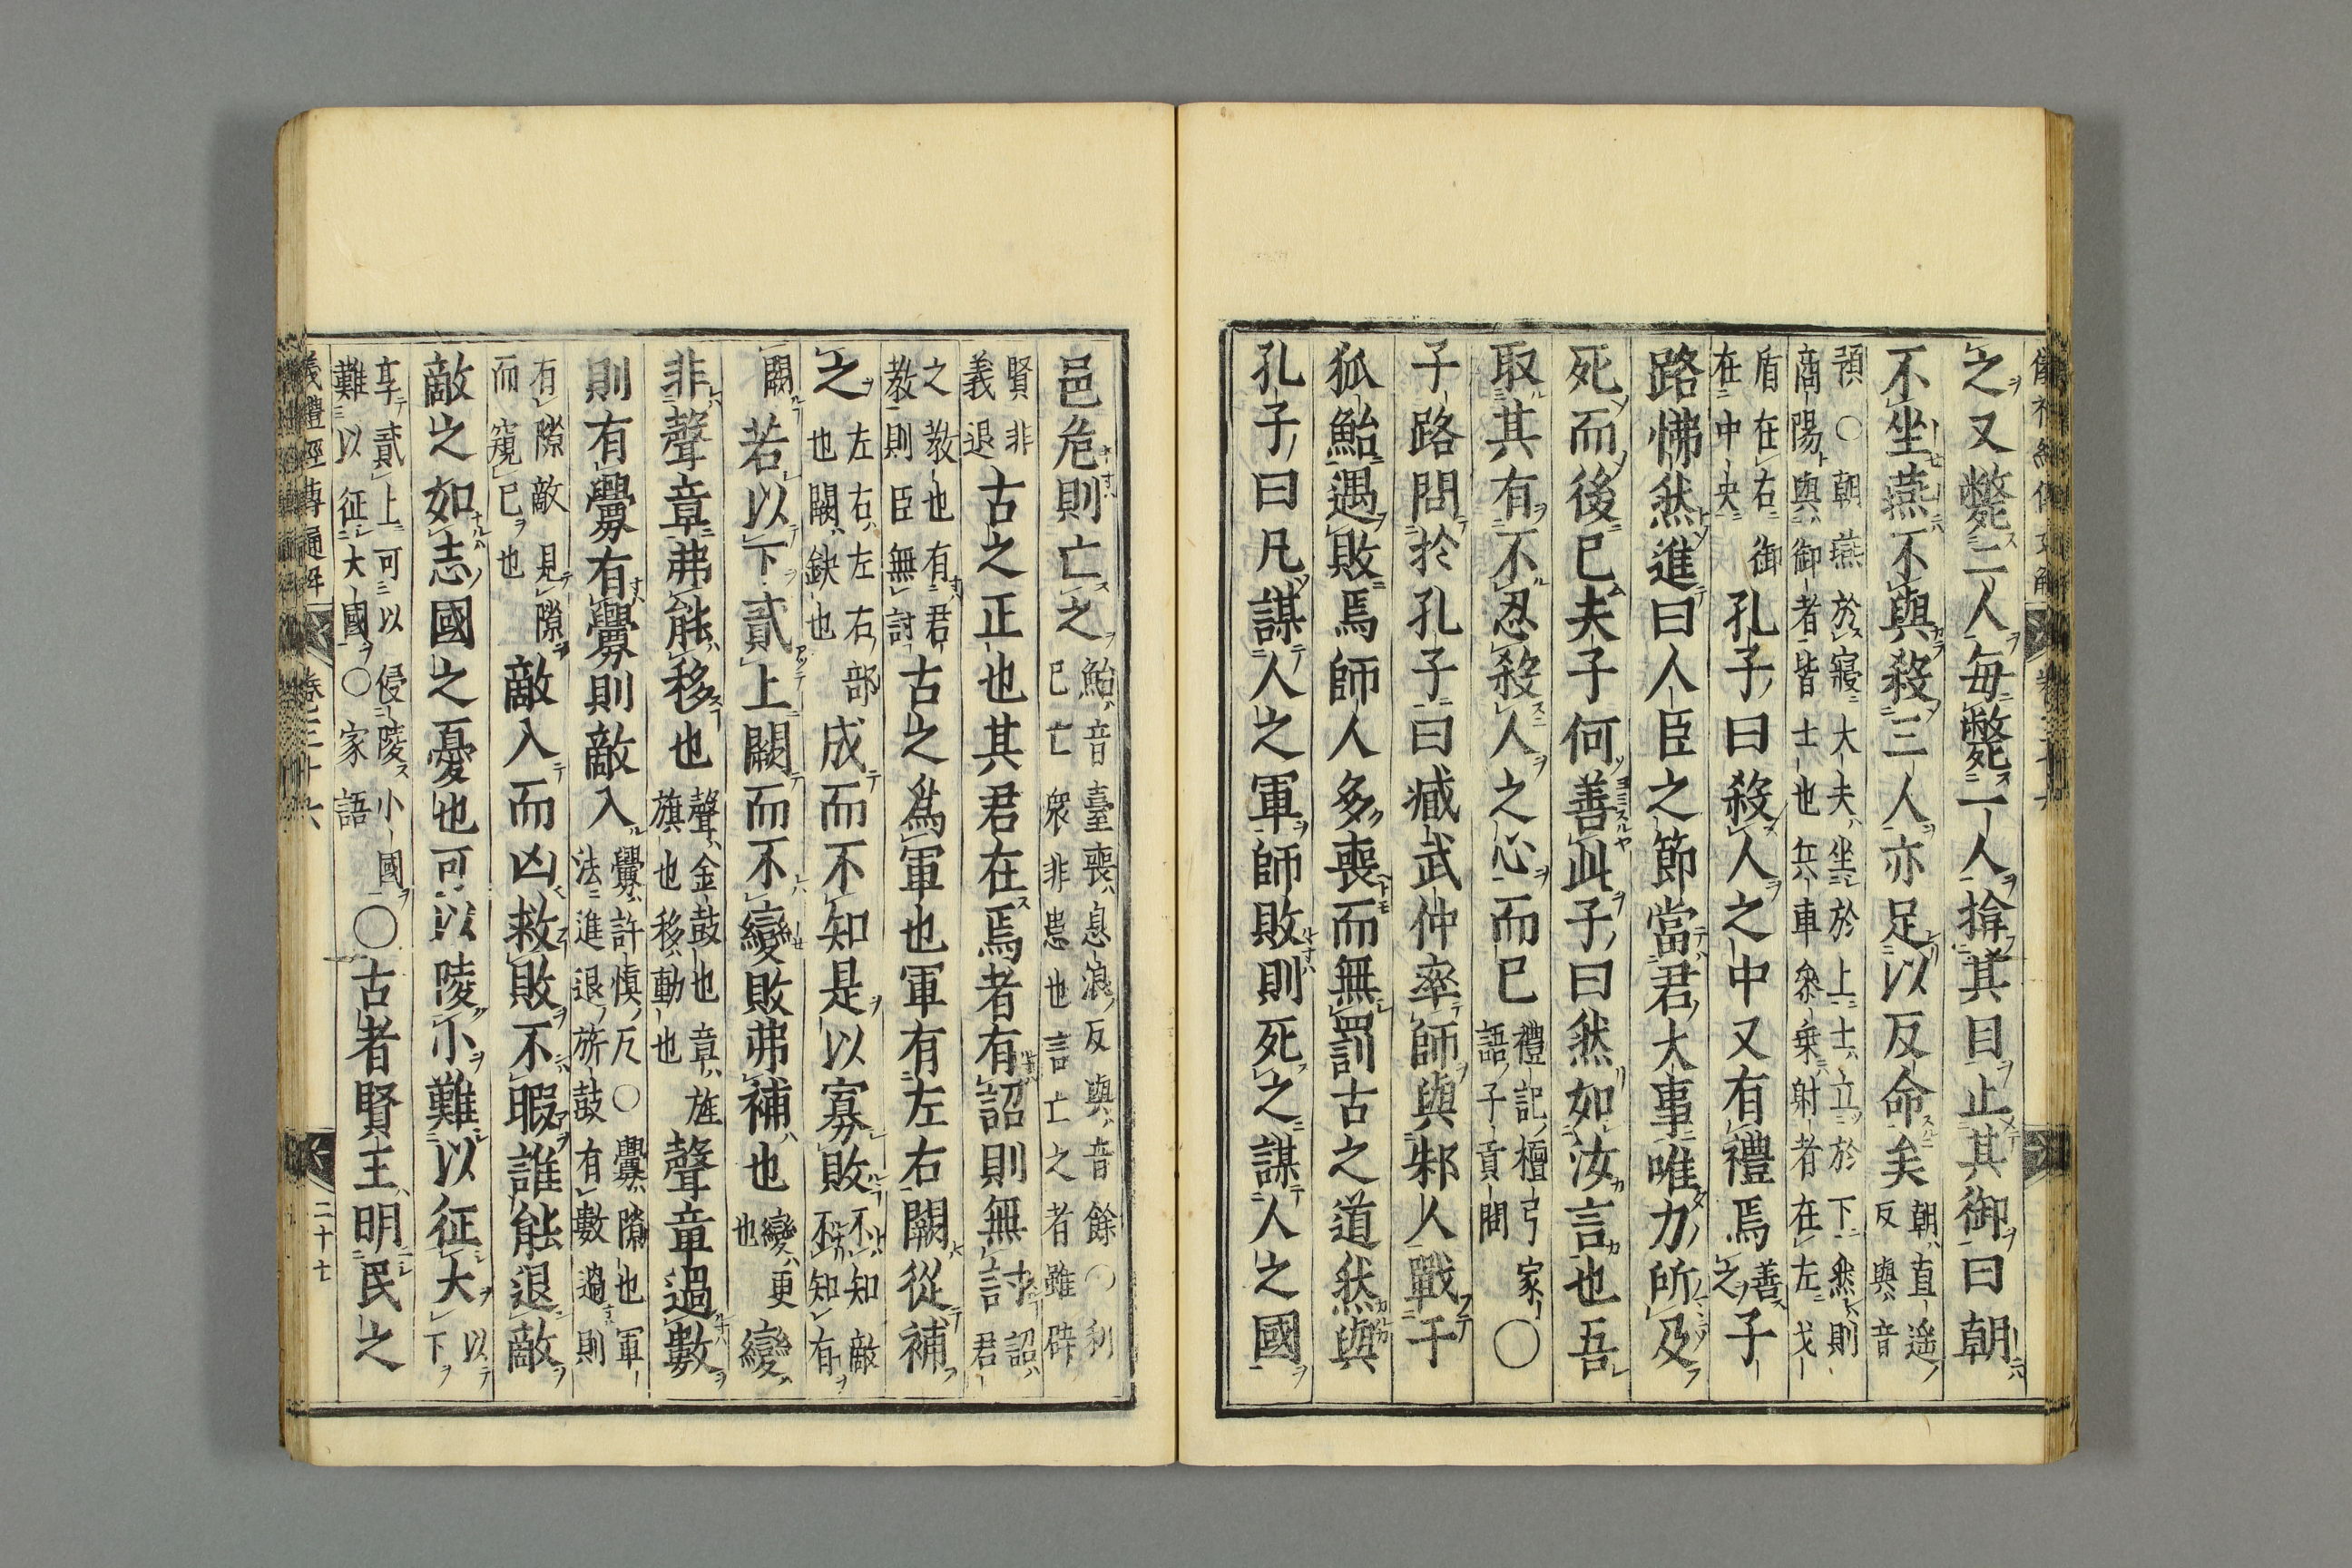 之又斃二人每斃一人揜其目止其御曰朝
不坐燕不與殺三人亦足以反命矣朝直遥反與音
預○朝燕於寢大夫坐於上士立於下然則
商陽與御者皆士也兵車參乗射者在左戈
盾在右御
在中央孔子曰殺人之中又有禮焉善之子
路怫然進曰人臣之節當君大事唯力所及
死而後已夫子何善此子曰然如汝言也吾
取其有不忍殺人之心而已禮記檀弓家
語子貢問○
子路問於孔子曰臧武仲率師與邾人戰于
狐鮐遇敗焉師人多喪而無罰古之道然與
孔子曰凡謀人之軍師敗則死之謀人之國
邑危則亡之鮐音臺喪息浪反與音餘○利
己亡衆非忠也言亡之者雖辟
賢非
義退古之正也其君在焉者有詔則無討詔君
之教也有君
教則臣無討古之爲軍也軍有左右闕從補
之左右左右部
也闕缺也成而不知是以寡敗不知敵
丕知有
闕若以下貳上闕而不變敗弗補也變更也變
非聲章弗能移也聲金鼓也章旌
旗也移動也聲章過數
則有釁有釁則敵入釁許慎反○釁隙也軍
法進退旂鼓有數過則
有隙敵見隙
而窺已也敵入而凶救敗不暇誰能退敵
敵之如志國之憂也可以陵小難以征大以下
享貳上可以侵陵小國
難以征大國○家語○古者賢王明民之
儀禮經傳通解 卷三十六 二十七